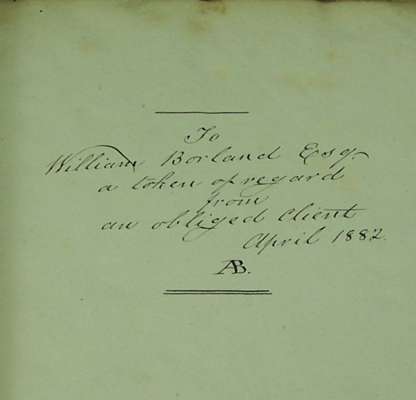 To
William Borland Esq.
a token of regard
from
an obliged Client
April 1882.
AB.